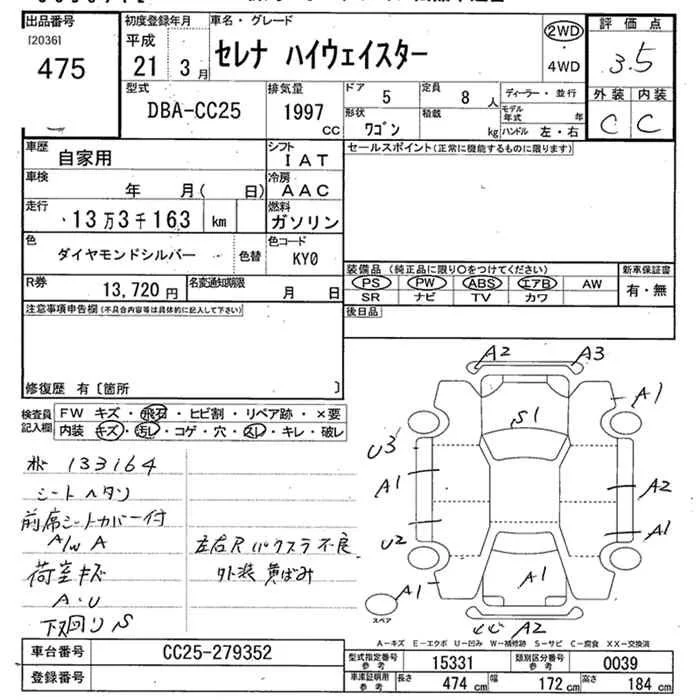 出品番号
[2036]
475
初度登録年月
平成
21 3月
車名・グレード
セレナ ハイウェイスター
2WD
・
4WD
評価点
3.5
型式
DBA-CC25
排気量
1997
CC
ドア 5
定員 8人
形状
ワゴン
積載
kg
ディーラー・並行
モデル年式 年
ハンドル 左・右
外装 内装
C C
車歴
自家用
シフト
IAT
車検
年 月( 日)
冷房
AAC
走行
13万3千163 km
燃料
ガソリン
色
ダイヤモンドシルバー
色替
色コード
KY0
R券
13,720円
名変通知期限
月 日
セールスポイント(正常に機能するものに限ります)
装備品 (純正品に限り○をつけてください)
PS PW ABS エアB AW
SR ナビ TV カワ
新車保証書
有・無
後日品
注意事項申告欄(不具合内容等は具体的に記入して下さい)
修復歴 有〔箇所 〕
検査員
記入欄
FW キズ・飛石・ヒビ割・リペア跡・×要
内装 キズ・汚レ・コゲ・穴・スレ・キレ・破レ
133164
シートヘタリ
前席シートカバー付
A/W A
荷室キズ
A・U
下回り S
左右Rバクスラ不良
外装 黄ばみ
A2 A3
A1
S1
U3
A1
A2
U2
A1
A1
A1
A2
スペア
A-キズ E-エクボ U-凹み W-補修跡 S-サビ C-腐食 XX-交換済
車台番号
CC25-279352
登録番号
型式指定番号
参考
15331
類別区分番号
参考
0039
車庫証明用
参考
長さ 474cm
幅 172cm
高さ 184cm